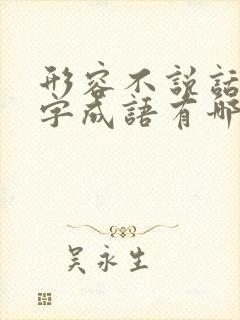 形容不說話
字成語有哪
吳永生